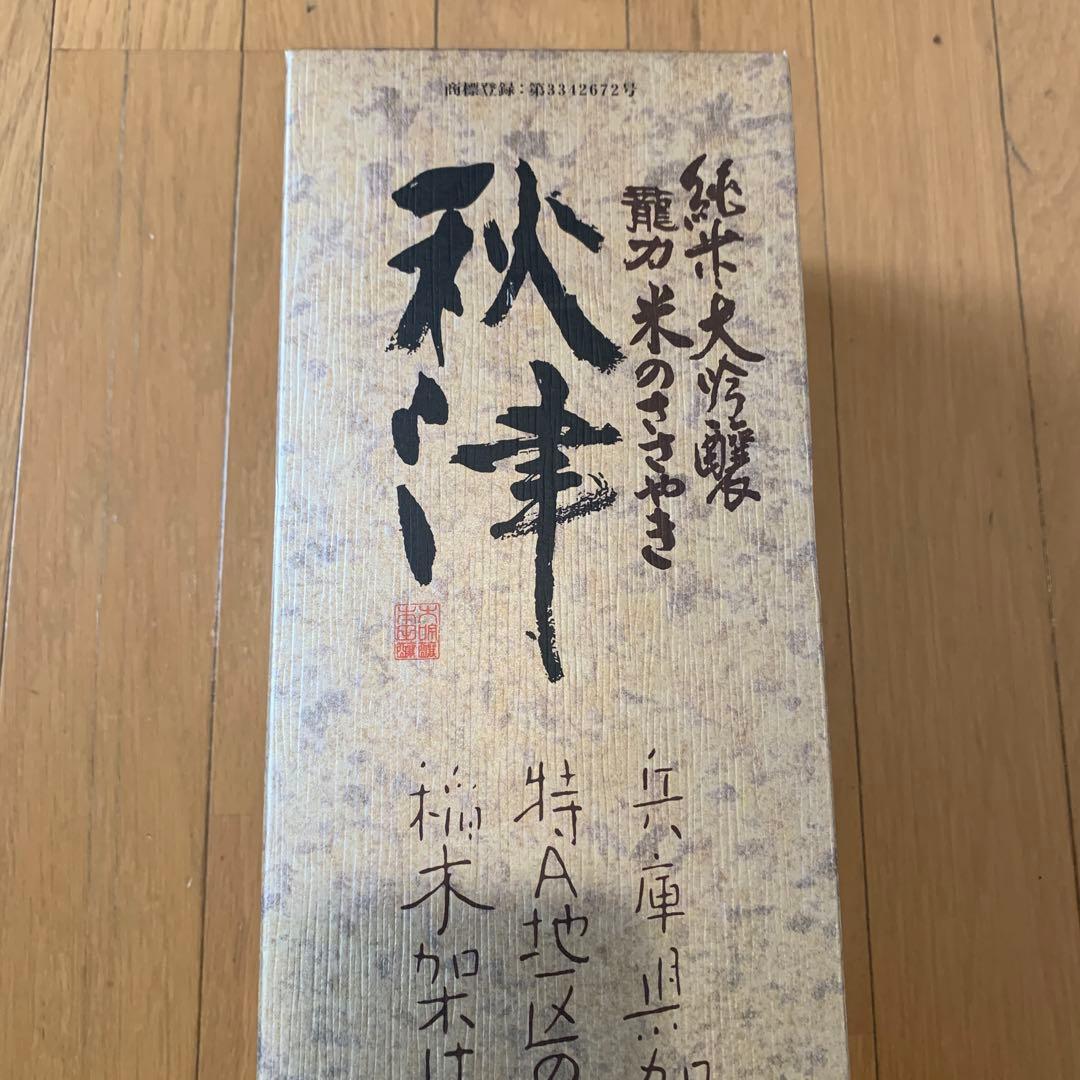 商標登録:第3342672号
純米大吟醸
龍力 米のささやき
秋津
兵庫県加
特A地区の
稲木架け